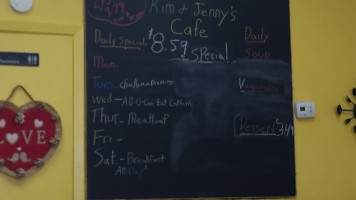 Kim & Jenny's
Cafe
Daily Special
$8.59 Special
Daily
Soup
Mon
Tues -
Wed - All U Can Eat Catfish
Thur - Meatloaf
Fri -
Sat. - Breakfast
All Day
Dessert 3.49
LOVE